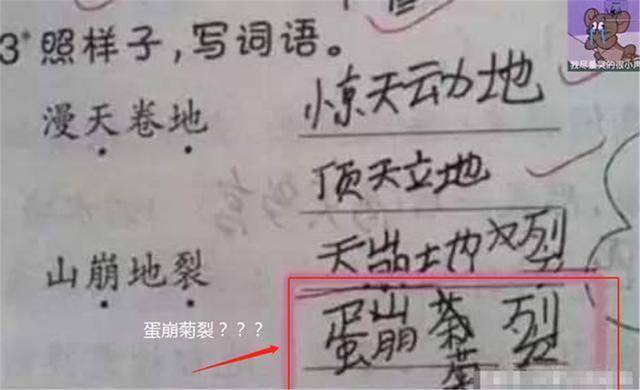 我尽量哭的很小声
3*照样子,写词语。
漫天卷地
惊天动地
顶天立地
山崩地裂
天崩地裂
蛋崩菊裂
蛋崩菊裂？？？